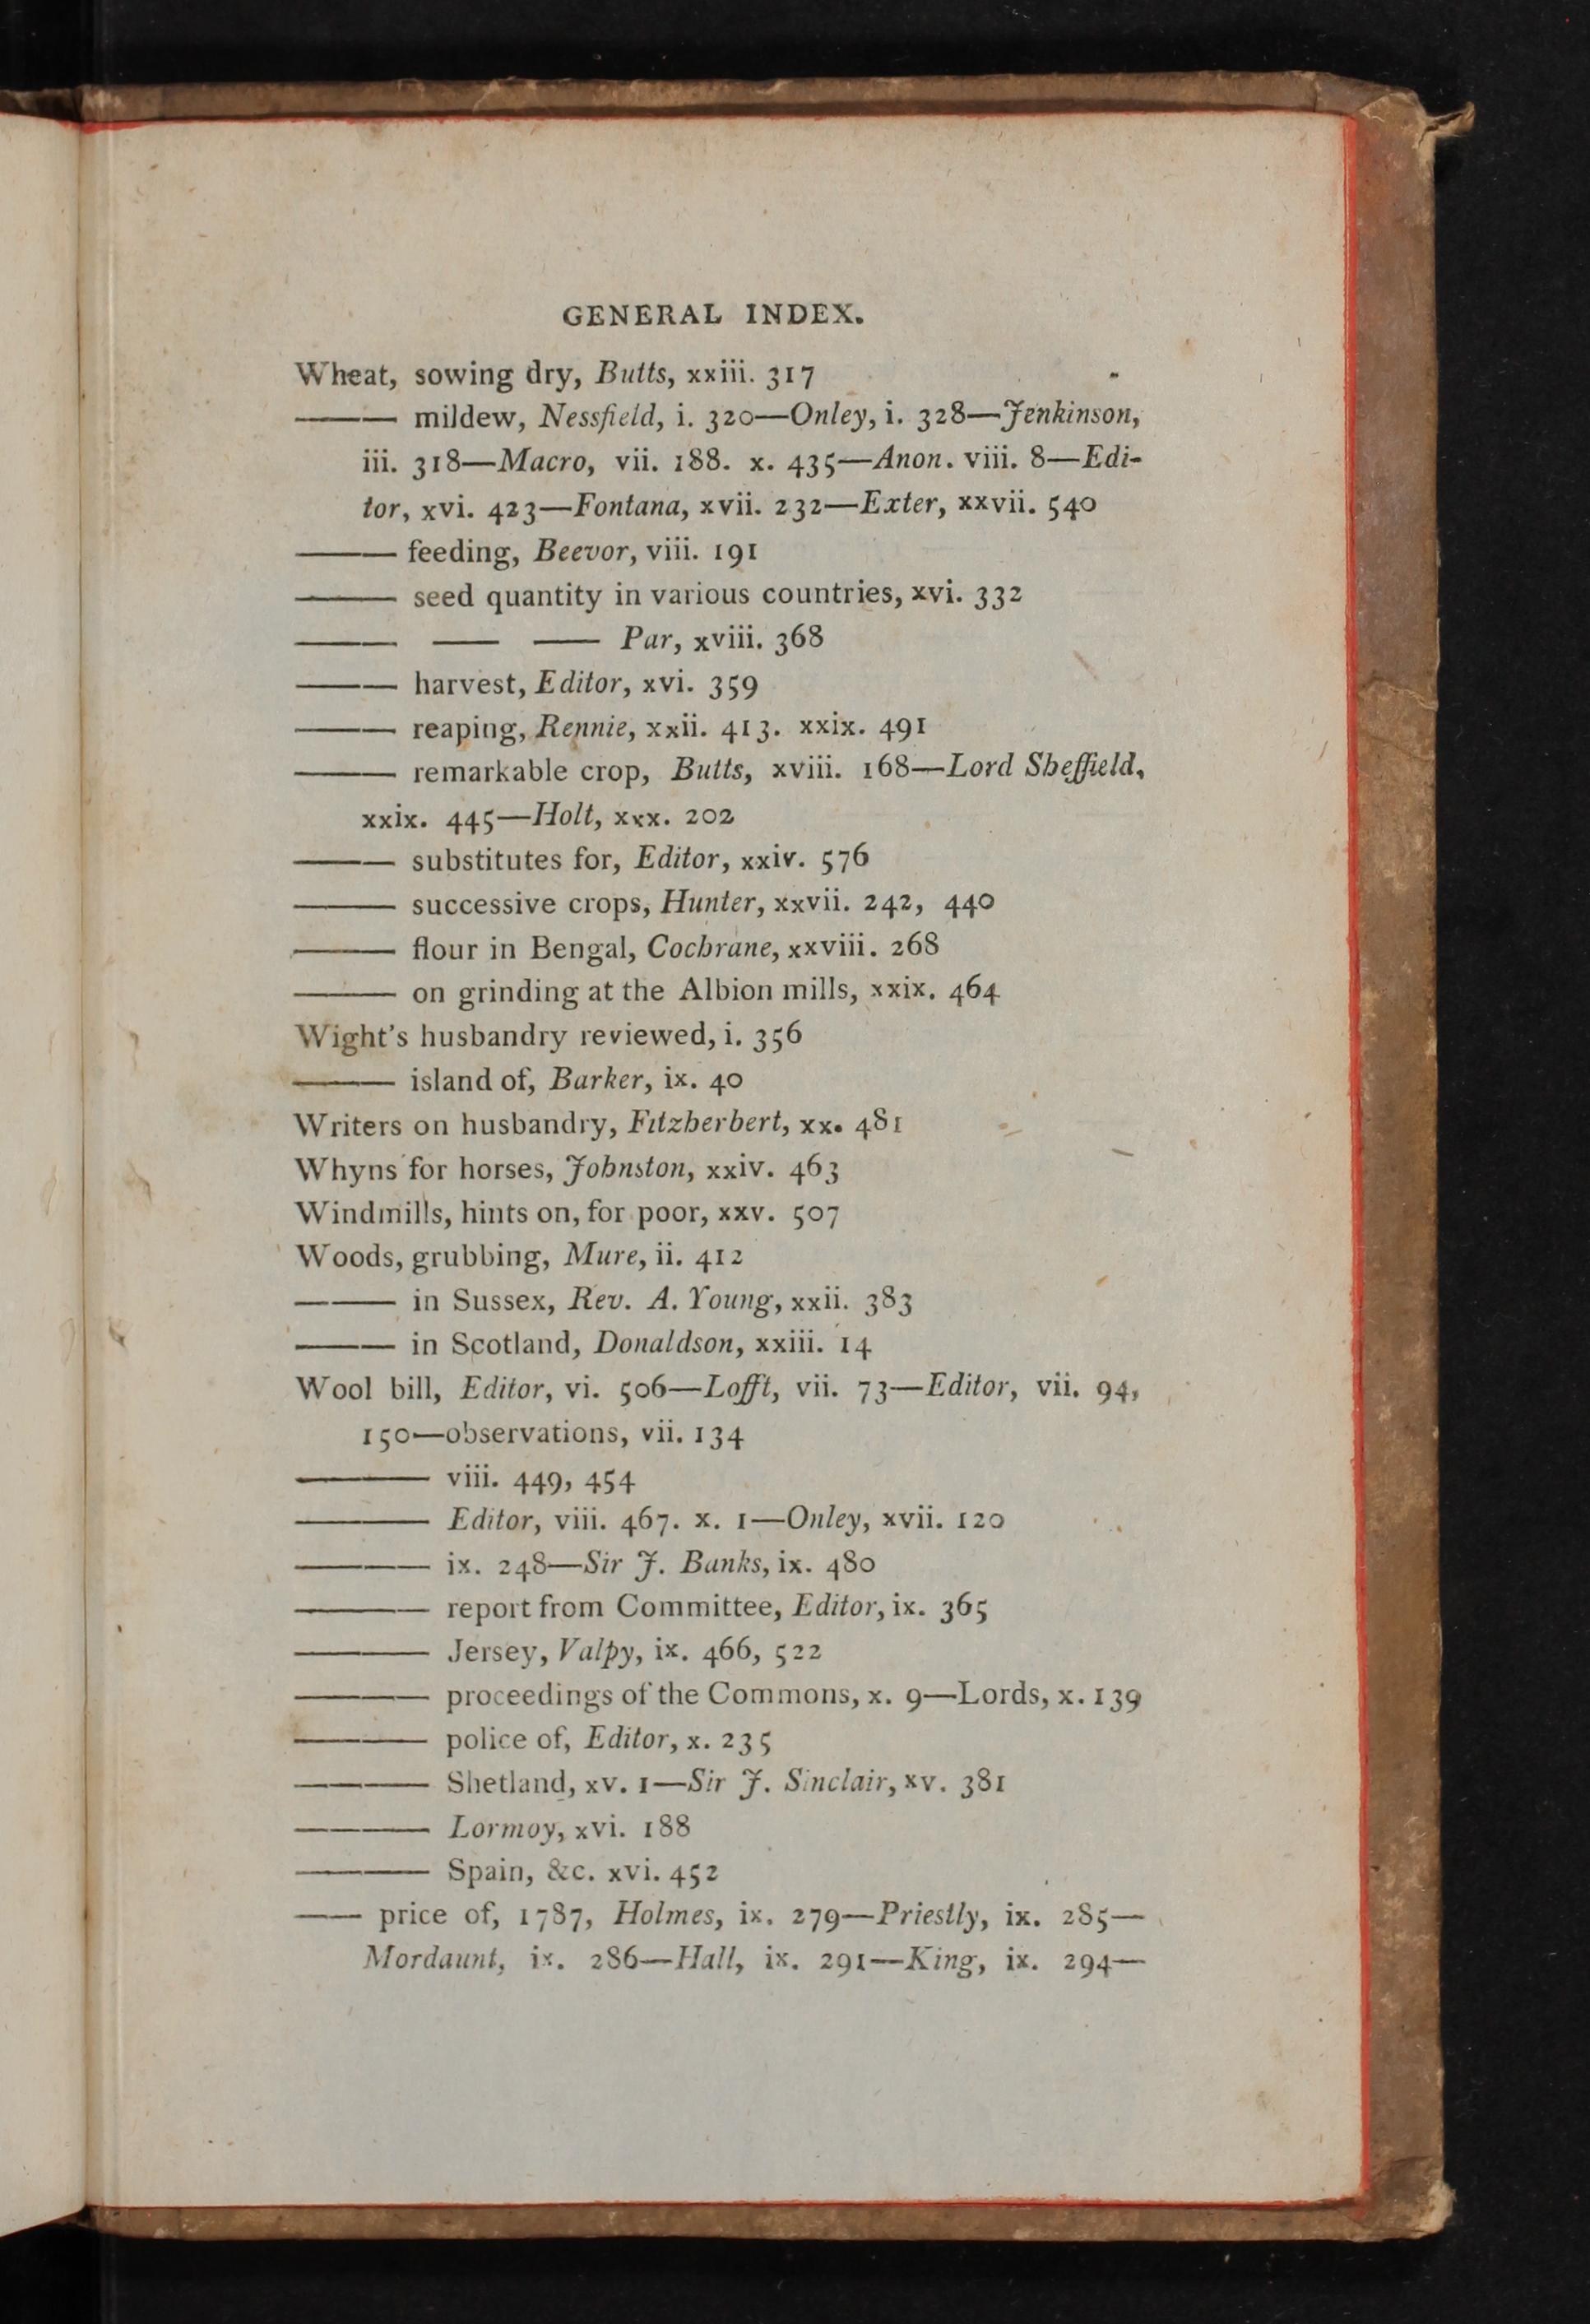 GENERAL INDEX.
Wheat, sowing dry, Butts, xxiii. 317
——— mildew, Nessfield, i. 320—Onley, i. 328—Jenkinson,
iii. 318—Macro, vii. 188. x. 435—Anon. viii. 8—Edi-
tor, xvi. 423—Fontana, xvii. 232—Exter, xxvii. 540
——— feeding, Beevor, viii. 191
——— seed quantity in various countries, xvi. 332
——— —— —— Par, xviii. 368
——— harvest, Editor, xvi. 359
——— reaping, Rennie, xxii. 413. xxix. 491
——— remarkable crop, Butts, xviii. 168—Lord Sheffield,
xxix. 445—Holt, xxx. 202
——— substitutes for, Editor, xxiv. 576
——— successive crops, Hunter, xxvii. 242, 440
——— flour in Bengal, Cochrane, xxviii. 268
——— on grinding at the Albion mills, xxix. 464
Wight's husbandry reviewed, i. 356
——— island of, Barker, ix. 40
Writers on husbandry, Fitzherbert, xx. 481
Whyns for horses, Johnston, xxiv. 463
Windmills, hints on, for poor, xxv. 507
Woods, grubbing, Mure, ii. 412
——— in Sussex, Rev. A. Young, xxii. 383
——— in Scotland, Donaldson, xxiii. 14
Wool bill, Editor, vi. 506—Lofft, vii. 73—Editor, vii. 94,
150—observations, vii. 134
———— viii. 449, 454
———— Editor, viii. 467. x. 1—Onley, xvii. 120
———— ix. 248—Sir J. Banks, ix. 480
———— report from Committee, Editor, ix. 365
———— Jersey, Valpy, ix. 466, 522
———— proceedings of the Commons, x. 9—Lords, x. 139
———— police of, Editor, x. 235
———— Shetland, xv. 1—Sir J. Sinclair, xv. 381
———— Lormoy, xvi. 188
———— Spain, &c. xvi. 452
—— price of, 1787, Holmes, ix. 279—Priestly, ix. 285—
Mordaunt, ix. 286—Hall, ix. 291—King, ix. 294—